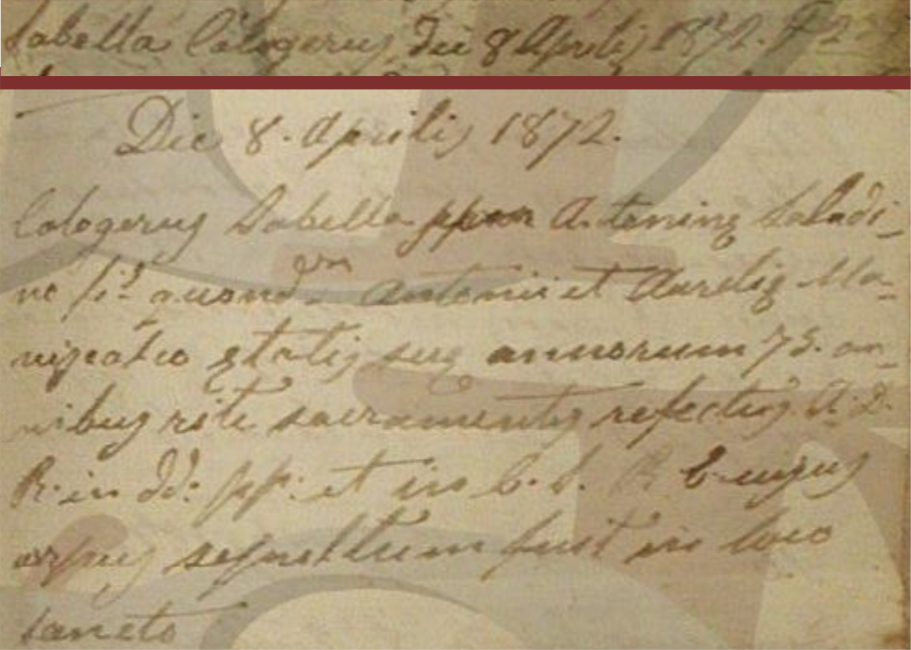 Sabella Calogerus die 8 Aprilis 1872. F 22
Die 8. Aprilis 1872.
Calogerus Sabella Antoninę Saladi_
no quond. Antonii et Aurelię Ma_
ętatis suę annorum 75. om_
nibus rite sacramentis refectus A. D.
R. in dd: pp: et in C. S. R E. cujus
corpus sepultum fuit in loco
sancto